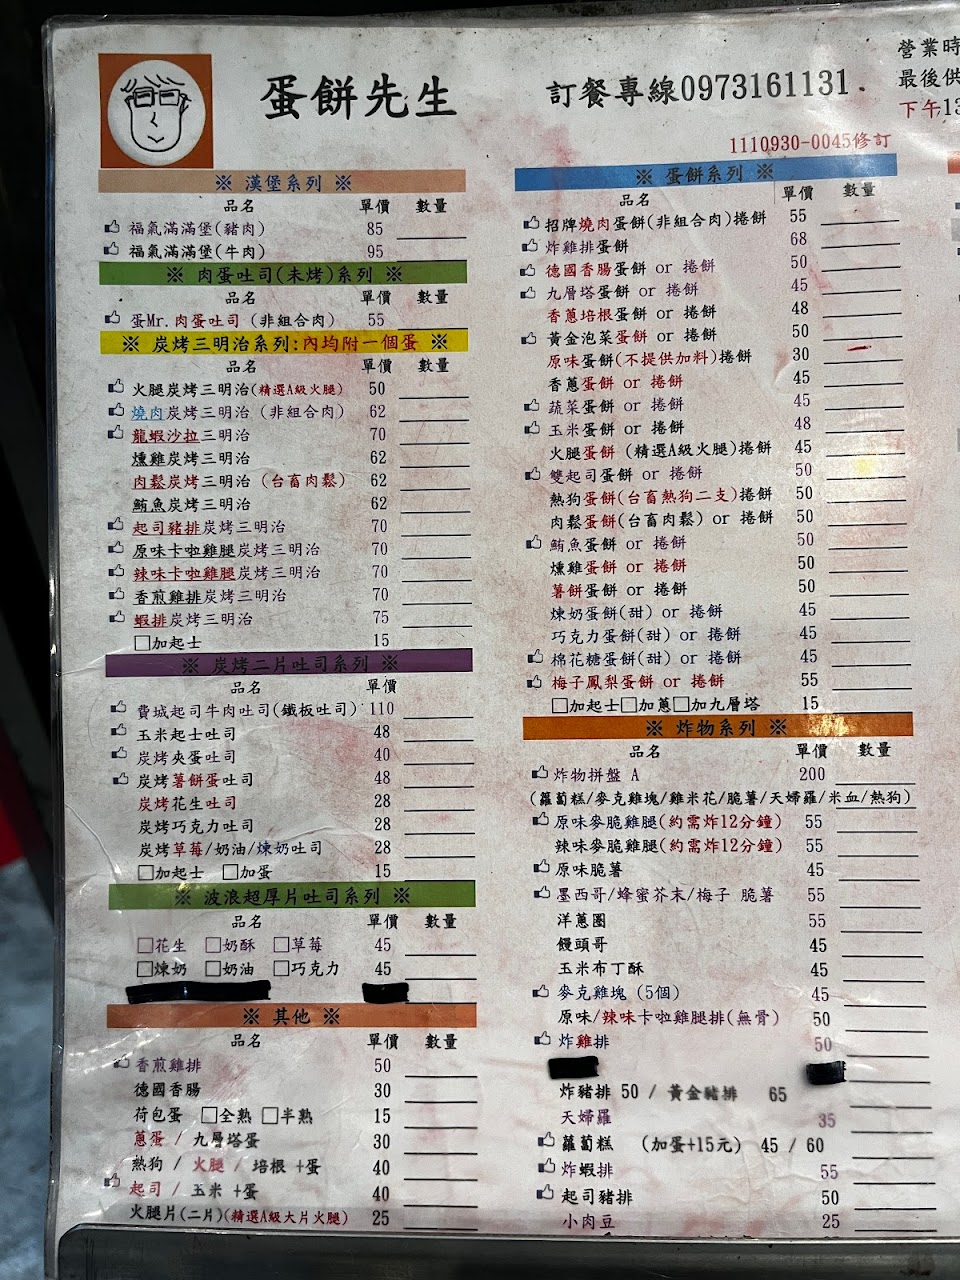 蛋餅先生
訂餐專線0973161131.
營業時
最後供
下午13
1110930-0045修訂
※ 漢堡系列 ※
品名 單價 數量
福氣滿滿堡(豬肉) 85
福氣滿滿堡(牛肉) 95
※ 肉蛋吐司(未烤)系列 ※
品名 單價 數量
蛋Mr.肉蛋吐司 (非組合肉) 55
※ 炭烤三明治系列:內均附一個蛋 ※
品名 單價 數量
火腿炭烤三明治(精選A級火腿) 50
燒肉炭烤三明治 (非組合肉) 62
龍蝦沙拉三明治 70
燻雞炭烤三明治 62
肉鬆炭烤三明治 (台畜肉鬆) 62
鮪魚炭烤三明治 62
起司豬排炭烤三明治 70
原味卡啦雞腿炭烤三明治 70
辣味卡啦雞腿炭烤三明治 70
香煎雞排炭烤三明治 70
蝦排炭烤三明治 75
□加起士 15
※ 炭烤二片吐司系列 ※
品名 單價
費城起司牛肉吐司(鐵板吐司) 110
玉米起士吐司 48
炭烤夾蛋吐司 40
炭烤薯餅蛋吐司 48
炭烤花生吐司 28
炭烤巧克力吐司 28
炭烤草莓/奶油/煉奶吐司 28
□加起士 □加蛋 15
※ 波浪超厚片吐司系列 ※
品名 單價 數量
□花生 □奶酥 □草莓 45
□煉奶 □奶油 □巧克力 45
※ 其他 ※
品名 單價 數量
香煎雞排 50
德國香腸 30
荷包蛋 □全熟 □半熟 15
蔥蛋 / 九層塔蛋 30
熱狗 / 火腿 / 培根 +蛋 40
起司 / 玉米 +蛋 40
火腿片(二片)(精選A級大片火腿) 25
※ 蛋餅系列 ※
品名 單價 數量
招牌燒肉蛋餅(非組合肉)捲餅 55
炸雞排蛋餅 68
德國香腸蛋餅 or 捲餅 50
九層塔蛋餅 or 捲餅 45
香蔥培根蛋餅 or 捲餅 48
黃金泡菜蛋餅 or 捲餅 50
原味蛋餅(不提供加料)捲餅 30
香蔥蛋餅 or 捲餅 45
蔬菜蛋餅 or 捲餅 45
玉米蛋餅 or 捲餅 48
火腿蛋餅 (精選A級火腿)捲餅 45
雙起司蛋餅 or 捲餅 50
熱狗蛋餅(台畜熱狗二支)捲餅 50
肉鬆蛋餅(台畜肉鬆) or 捲餅 50
鮪魚蛋餅 or 捲餅 50
燻雞蛋餅 or 捲餅 50
薯餅蛋餅 or 捲餅 50
煉奶蛋餅(甜) or 捲餅 45
巧克力蛋餅(甜) or 捲餅 45
棉花糖蛋餅(甜) or 捲餅 45
梅子鳳梨蛋餅 or 捲餅 55
□加起士□加蔥□加九層塔 15
※ 炸物系列 ※
品名 單價 數量
炸物拼盤 A 200
(蘿蔔糕/麥克雞塊/雞米花/脆薯/天婦羅/米血/熱狗)
原味麥脆雞腿(約需炸12分鐘) 55
辣味麥脆雞腿(約需炸12分鐘) 55
原味脆薯 45
墨西哥/蜂蜜芥末/梅子 脆薯 55
洋蔥圈 55
饅頭哥 45
玉米布丁酥 45
麥克雞塊 (5個) 45
原味/辣味卡啦雞腿排(無骨) 50
炸雞排 50
炸豬排 50 / 黃金豬排 65
天婦羅 35
蘿蔔糕 (加蛋+15元) 45 / 60
炸蝦排 55
起司豬排 50
小肉豆 25